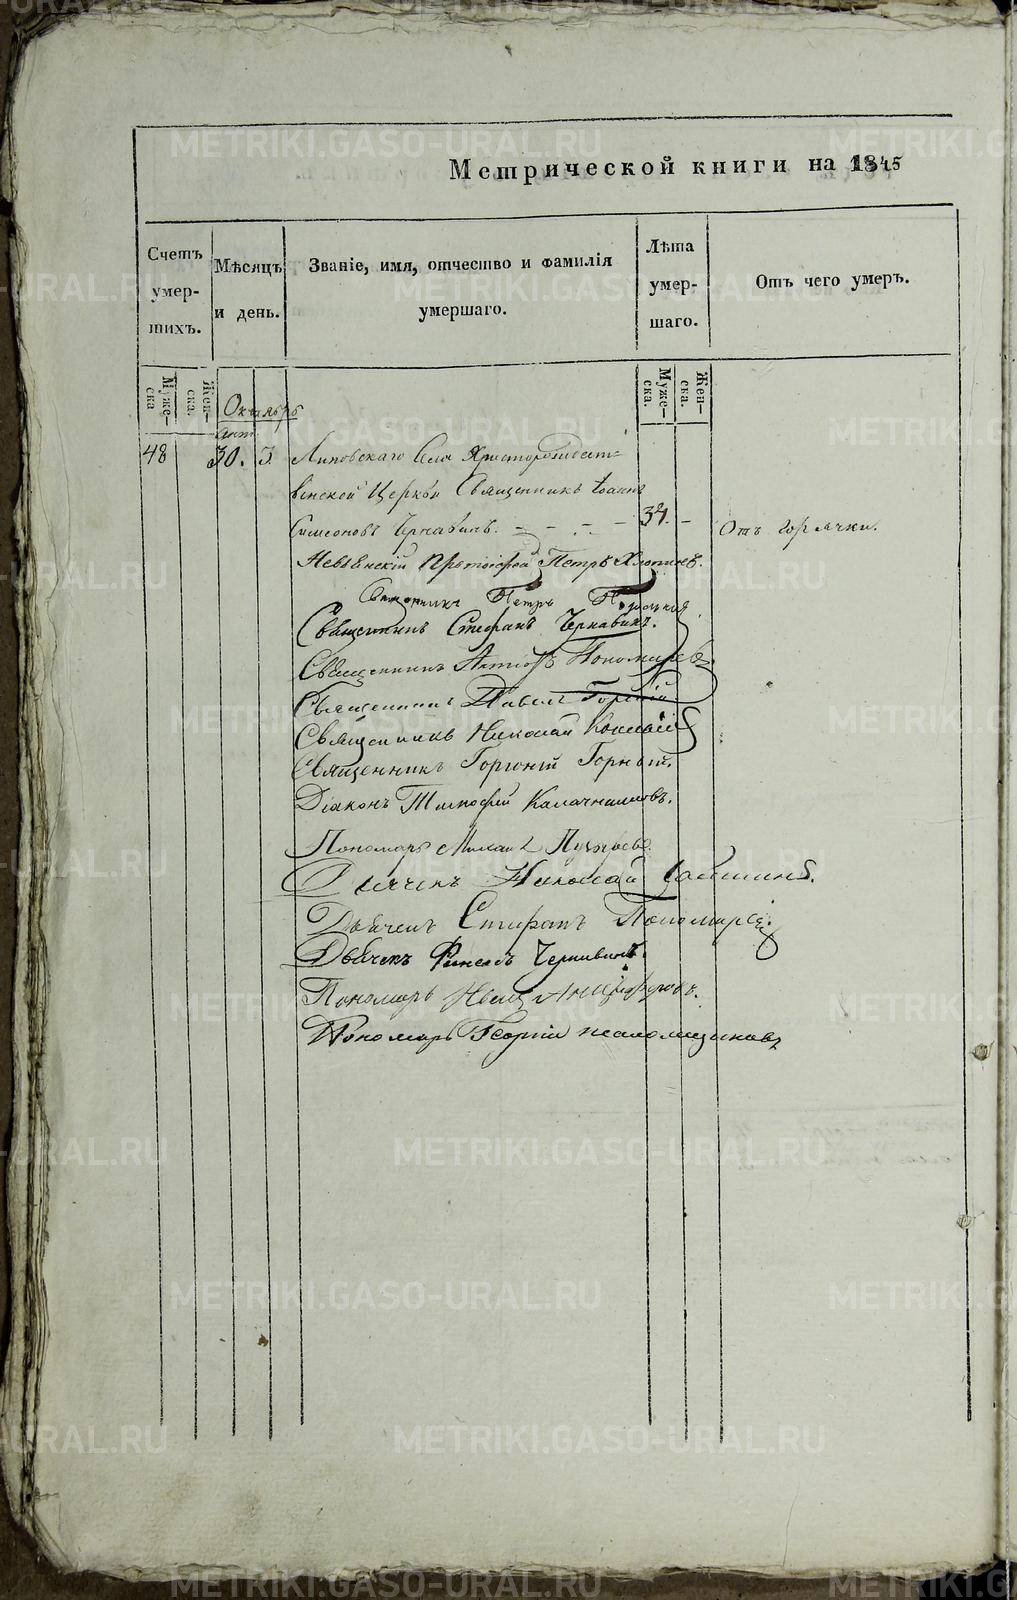 Метрической книги на 1845
Счетъ умер- шихъ.
Мѣсяцъ и день.
Званіе, имя, отчество и фамилія умершаго.
Лѣта умер- шаго.
Отъ чего умеръ.
Муже- ска
Жен- ска.
Октябрь
Муже- ска.
Жен- ска.
48 30. 3. Липовскаго Села Христорождест-
венской Церкви Священникъ Іоаннъ
Симеоновъ Чернавинъ. 34. Отъ горячки.
Невьянскій Протоіерей Петръ Хлопинъ.
Священникъ Петръ
Священникъ Стефанъ Чернавинъ.
Священникъ Пономаревъ
Священникъ Павелъ Горный
Священникъ Николай
Священникъ Горгоній Горный.
Діаконъ Тимофей Калачниковъ.
Пономарь Михаил Пузыревъ
Дьячекъ Николай
Дьячекъ Стефанъ Пономаревъ
Дьячекъ Чернавинъ.
Пономарь Иванъ Анциферовъ.
Пономарь Георгій
METRIKI.GASO-URAL.RU